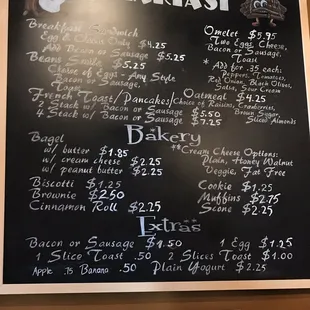 Breakfast Sandwich
Egg & Cheese Only $4.25
Add Bacon or Sausage $5.25
$5.25
Choice of Eggs - Any Style
Bacon or Sausage
Toast
French Toast/Pancakes/
2 Stack w/ Bacon or Sausage $5.50
4 Stack w/ Bacon or Sausage $7.25
Omelet $5.95
Two Eggs, Cheese,
Bacon or Sausage,
Toast
* Add for .35 each:
Peppers, Tomatoes,
Red Onion, Black Olives,
Salsa, Sour Cream
Oatmeal $4.25
Choice of Raisins, Cranberries,
Brown Sugar,
Sliced Almonds
Bakery
Bagel
w/ butter $1.85
w/ cream cheese $2.25
w/ peanut butter $2.25
Biscotti $1.25
Brownie $2.50
Cinnamon Roll $2.25
**Cream Cheese Options:
Plain, Honey Walnut
Veggie, Fat Free
Cookie $1.25
Muffins $2.75
Scone $2.25
Extras
Bacon or Sausage $1.50 1 Egg $1.25
1 Slice Toast .50 2 Slices Toast $1.00
Apple .75 Banana .50 Plain Yogurt $2.25